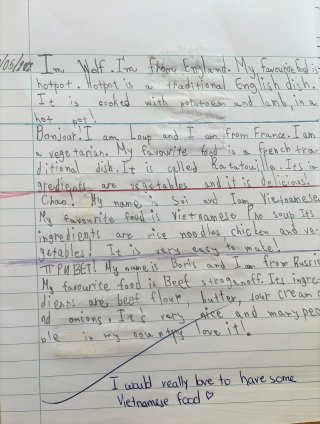 /05/202
I'm Wolf. I'm from England. My favourite food is
hotpot. Hotpot is a traditional English dish.
It is cooked with potatoes and lamb, in a
hot pot!
Bonjour! I am Loup and I am from France. I am
a vegetarian. My favourite food is a french tra-
ditional dish. It is called Ratatouille. Its in-
gredients are vegetables and it is delicious.
Chao! My name is Soi and I am Vietnamese
My favourite food is Vietnamese Pho soup Its
ingredients are rice noodles chicken and ve-
getables! It is very easy to make!
ПРИВЕТ! My name is Boris and I am from Russia
My favourite food is Beef stroganoff. Its ingre-
dients are beef flour, butter, sour cream a
nd onions. It's very nice and many peo
ple in my country love it!
I would really love to have some
Vietnamese food ♡